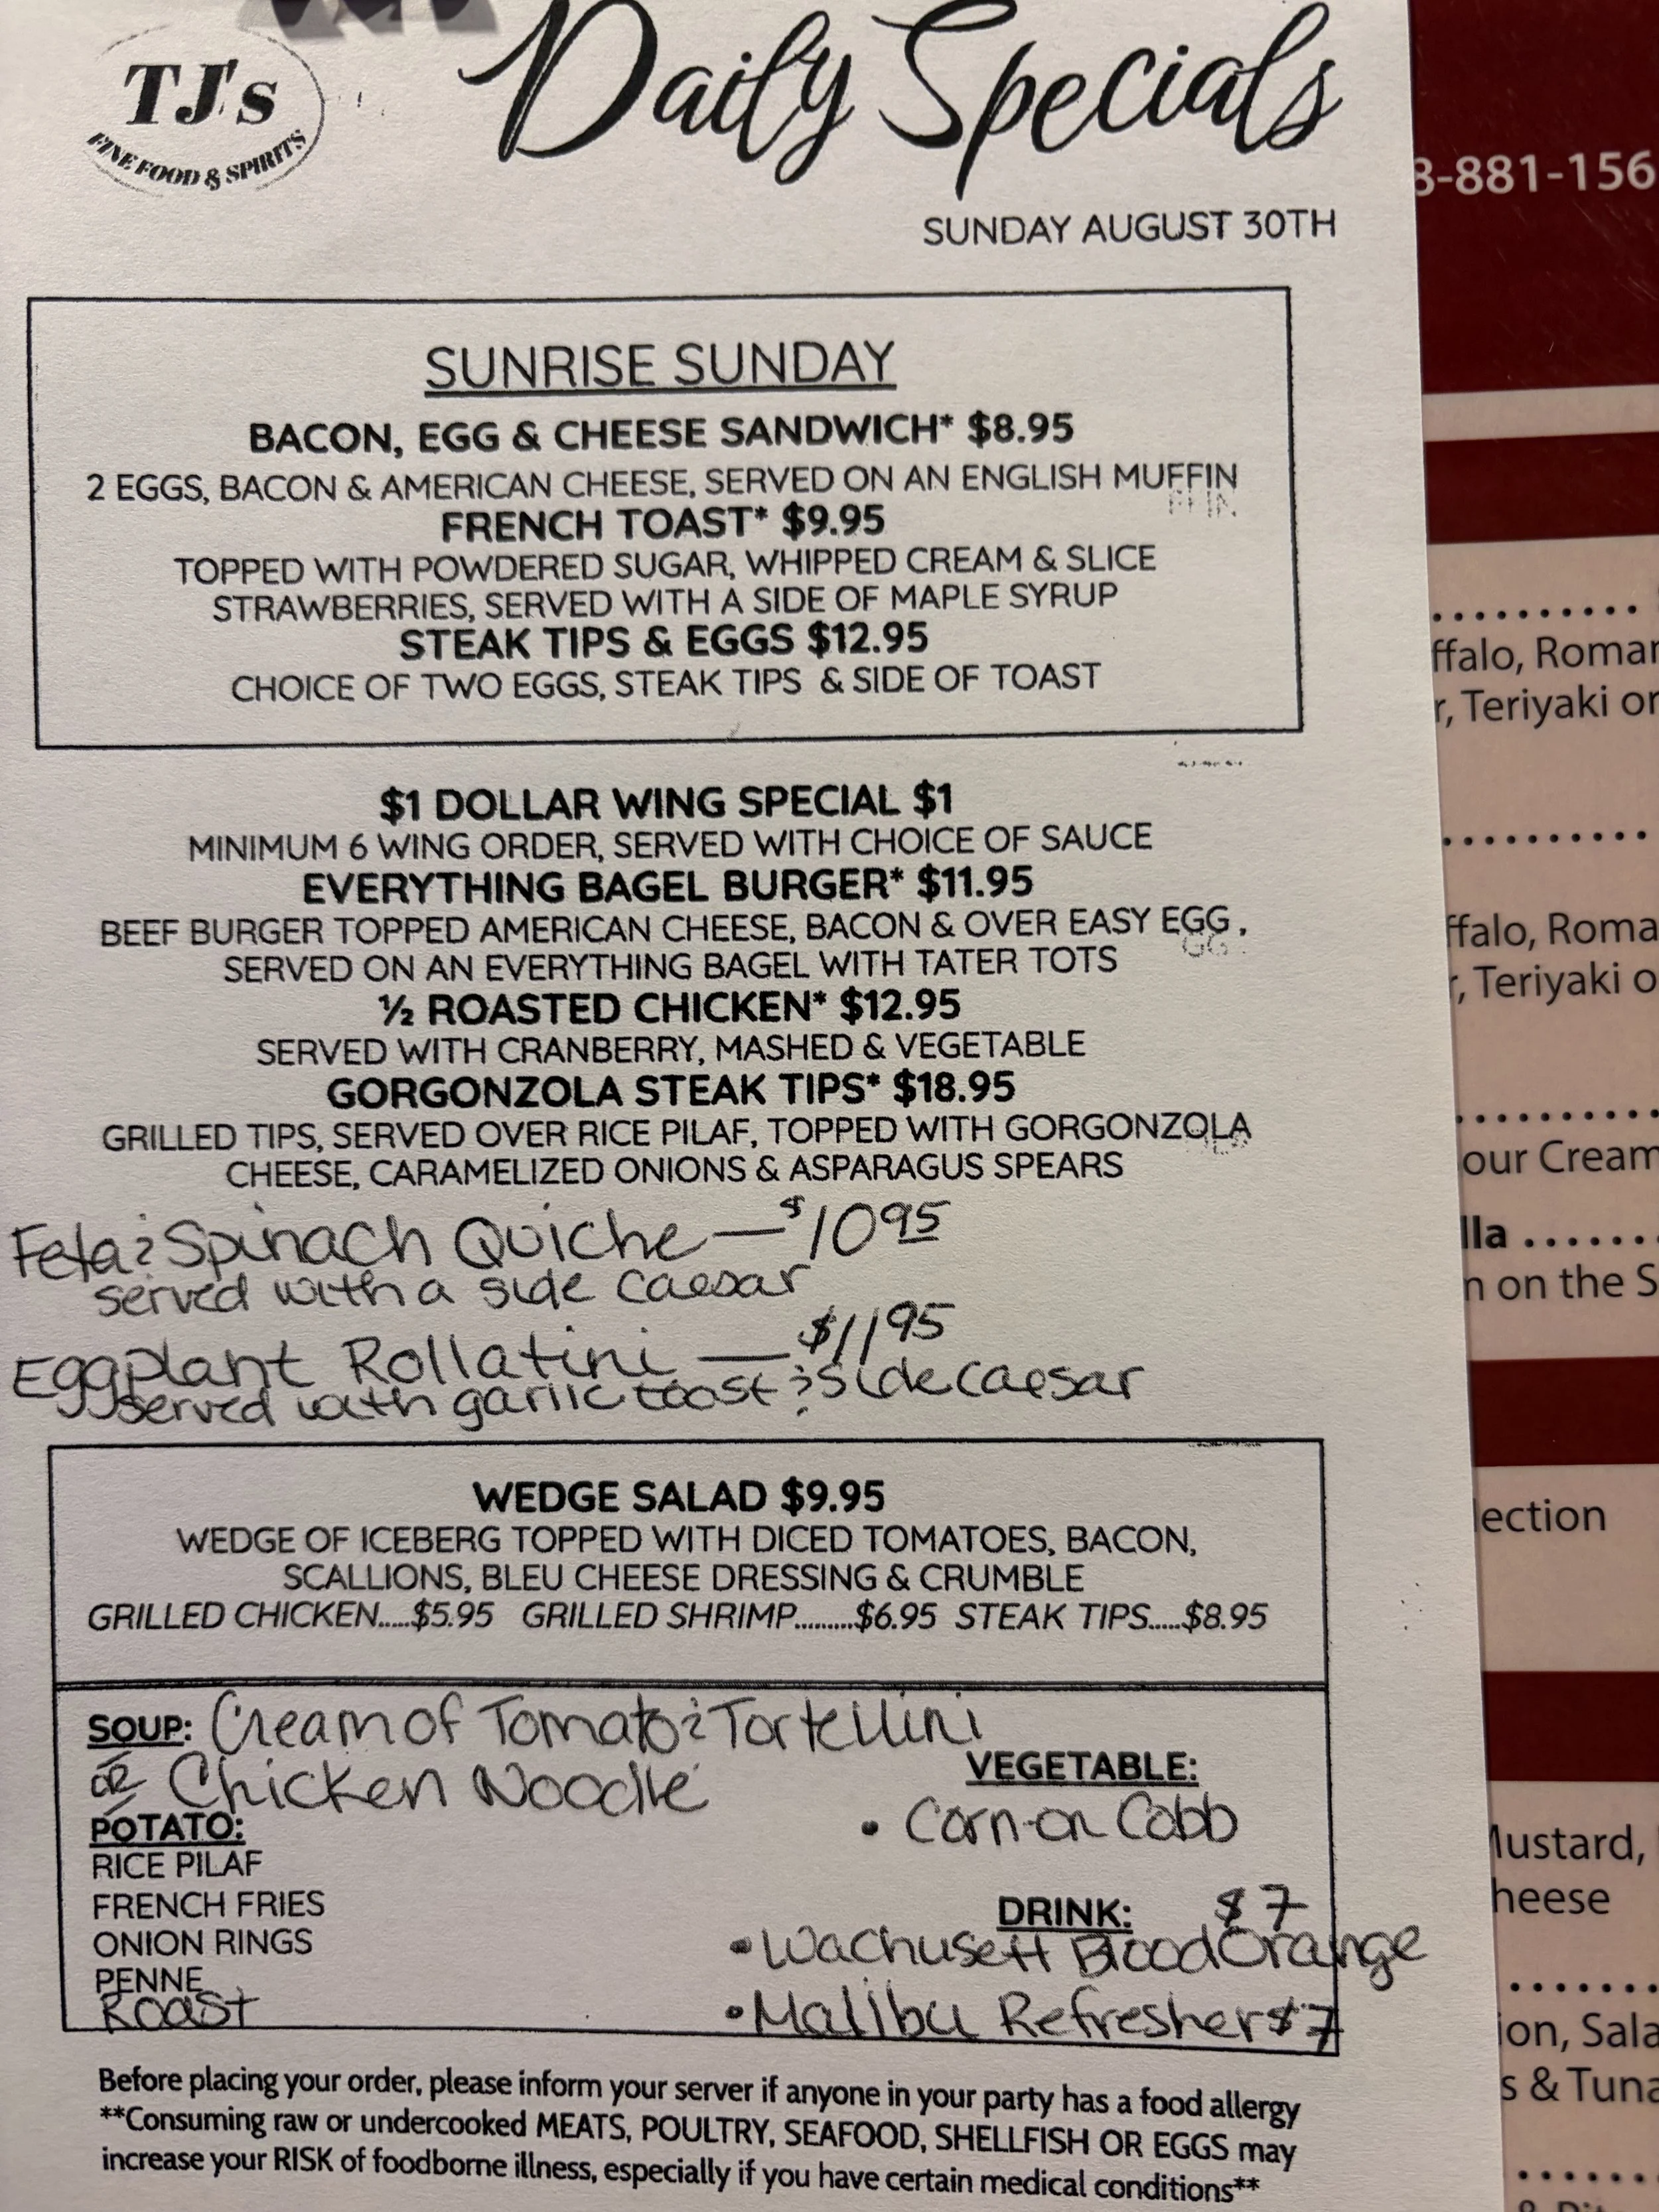 TJ's
FINE FOOD & SPIRITS
Daily Specials
SUNDAY AUGUST 30TH
SUNRISE SUNDAY
BACON, EGG & CHEESE SANDWICH* $8.95
2 EGGS, BACON & AMERICAN CHEESE, SERVED ON AN ENGLISH MUFFIN
FRENCH TOAST* $9.95
TOPPED WITH POWDERED SUGAR, WHIPPED CREAM & SLICE
STRAWBERRIES, SERVED WITH A SIDE OF MAPLE SYRUP
STEAK TIPS & EGGS $12.95
CHOICE OF TWO EGGS, STEAK TIPS & SIDE OF TOAST
$1 DOLLAR WING SPECIAL $1
MINIMUM 6 WING ORDER, SERVED WITH CHOICE OF SAUCE
EVERYTHING BAGEL BURGER* $11.95
BEEF BURGER TOPPED AMERICAN CHEESE, BACON & OVER EASY EGG,
SERVED ON AN EVERYTHING BAGEL WITH TATER TOTS
½ ROASTED CHICKEN* $12.95
SERVED WITH CRANBERRY, MASHED & VEGETABLE
GORGONZOLA STEAK TIPS* $18.95
GRILLED TIPS, SERVED OVER RICE PILAF, TOPPED WITH GORGONZOLA
CHEESE, CARAMELIZED ONIONS & ASPARAGUS SPEARS
Feta & Spinach Quiche — $10 95
served with a side caesar
Eggplant Rollatini — $11 95
served with garlic toast & side caesar
WEDGE SALAD $9.95
WEDGE OF ICEBERG TOPPED WITH DICED TOMATOES, BACON,
SCALLIONS, BLEU CHEESE DRESSING & CRUMBLE
GRILLED CHICKEN.....$5.95 GRILLED SHRIMP.........$6.95 STEAK TIPS.....$8.95
SOUP: Cream of Tomato & Tortellini
OR Chicken Noodle
POTATO:
RICE PILAF
FRENCH FRIES
ONION RINGS
PENNE
Roast
VEGETABLE:
• Corn-on Cobb
DRINK: $7
• Wachusett Blood Orange
• Malibu Refresher $7
Before placing your order, please inform your server if anyone in your party has a food allergy
**Consuming raw or undercooked MEATS, POULTRY, SEAFOOD, SHELLFISH OR EGGS may
increase your RISK of foodborne illness, especially if you have certain medical conditions**
8-881-156
ffalo, Roma
r, Teriyaki or
ffalo, Roma
, Teriyaki o
our Cream
lla .......
n on the S
lection
Mustard,
heese
ion, Sala
s & Tuna